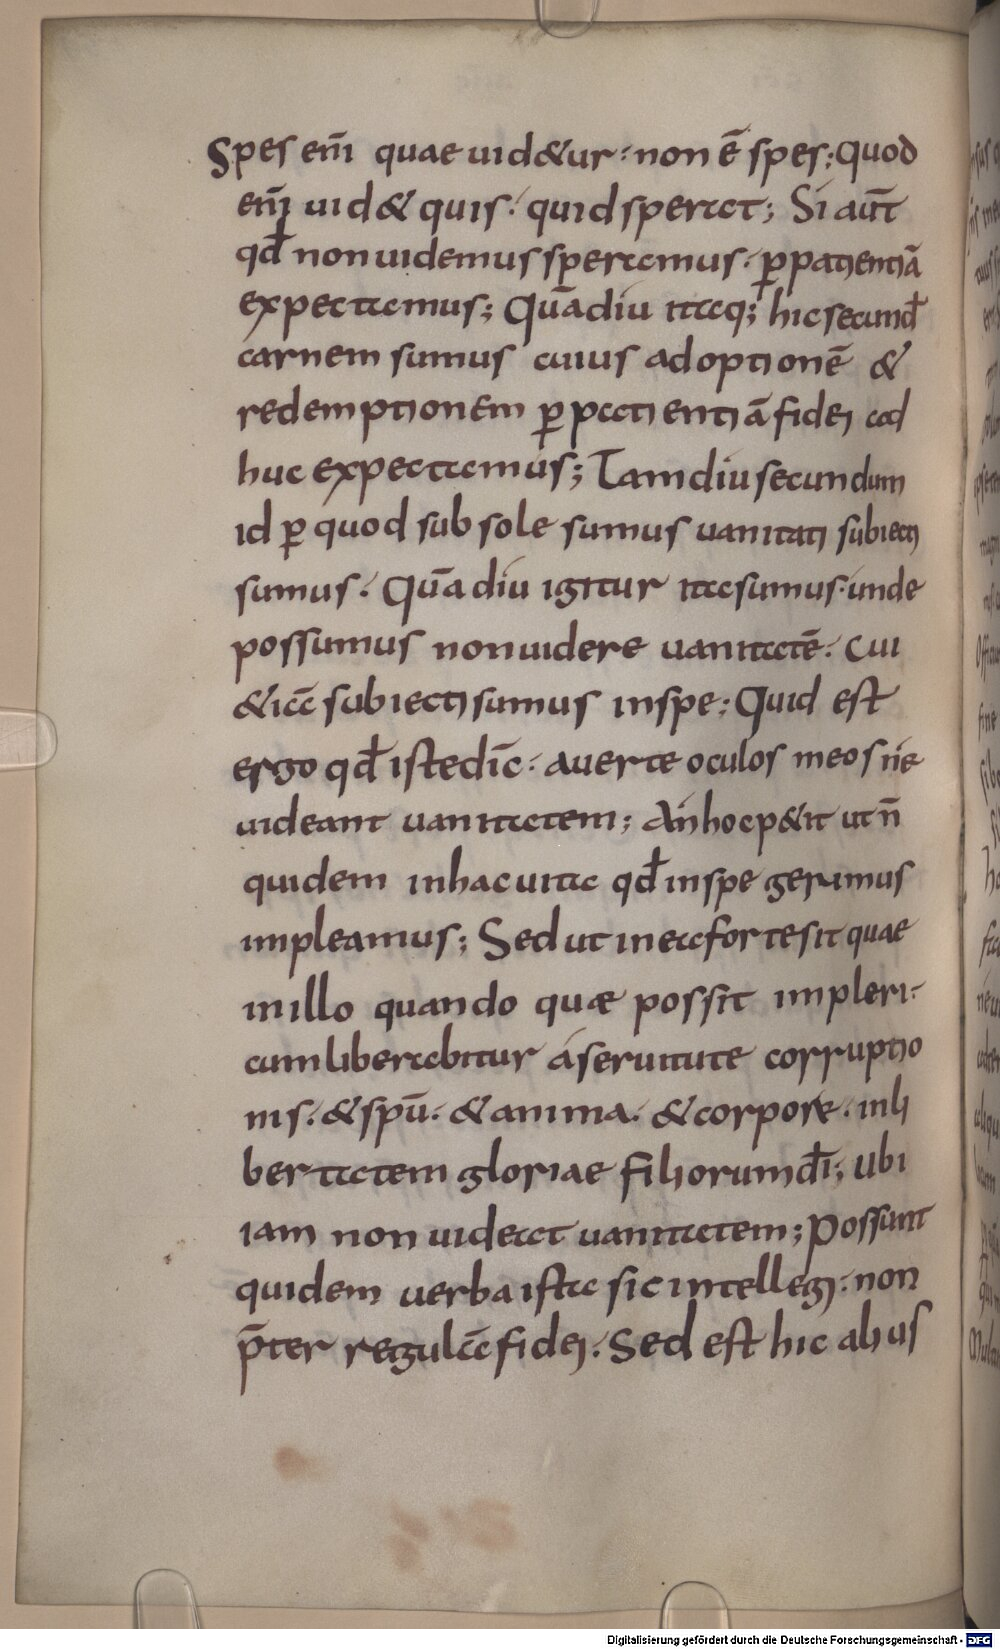 Spes em̄ quae uid&ur· non ē spes; Quod
em̄ uid& quis· quid sperat; Si aut̄
qđ non uidemus speramus· ꝑ patientiā
expectamus; Quādiu itaq; hic secund̄
carnem sumus cuius adoptionē &
redemptionem ꝑ patientiā fidei ad
huc expectamus; Tamdiu secundum
id ꝑ quod sub sole sumus uanitati subiecti
sumus· Quādiu igitur ita sumus· unde
possumus non uidere uanitatē· Cui
&iā subiecti sumus in spe; Quid est
ergo qđ iste dic̄· auerte oculos meos ne
uideant uanitatem; An hoc p&it ut n̄
quidem in hac uita qđ in spe gerimus
impleamus; Sed ut in ea forte sit quae
in illo quando quæ possit impleri·
cum liberabitur a seruitute corruptio
nis· & spū· & anima· & corpore· in li
bertatem gloriae filiorum dī; Ubi
iam non uideat uanitatem; Possunt
quidem uerba ista sic intellegi· non
p̄ter regulā fidei· Sed est hic alius
Digitalisierung gefördert durch die Deutsche Forschungsgemeinschaft - DFG